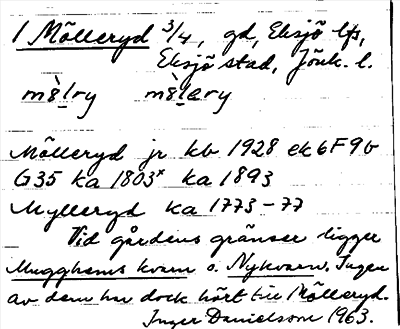 1 Mölleryd 3/4, gd, Eksjö lfs,
Eksjö stad, Jönk. l.
Mölleryd jr kb 1928 ek 6F9b
G35 ka 1803x ka 1893
Mylleryd ka 1773-77
Vid gårdens gränser ligger
Mugghems kvarn o. Nykvarn. Ingen
av dem har dock hört till Mölleryd.
Inger Danielsson 1963.